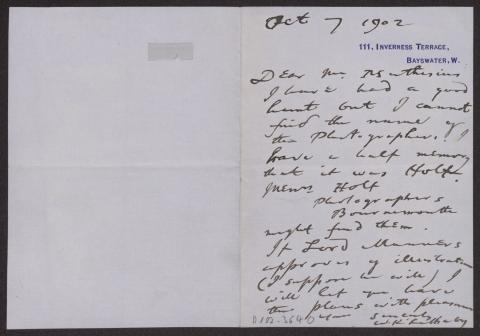 Oct 7 1902
111, INVERNESS TERRACE,
BAYSWATER, W.
Dear Mr. Muthesius
I have had a good
hunt but I cannot
find the name of
the Photographer. I
have a half memory
that it was Holt.
Messrs Holt
Photographers
Bournemouth
might find them.
If Lord Manners
approves of illustration
(I suppose he will) I
will let you have
the plans with pleasure
yours sincerely
W R Lethaby